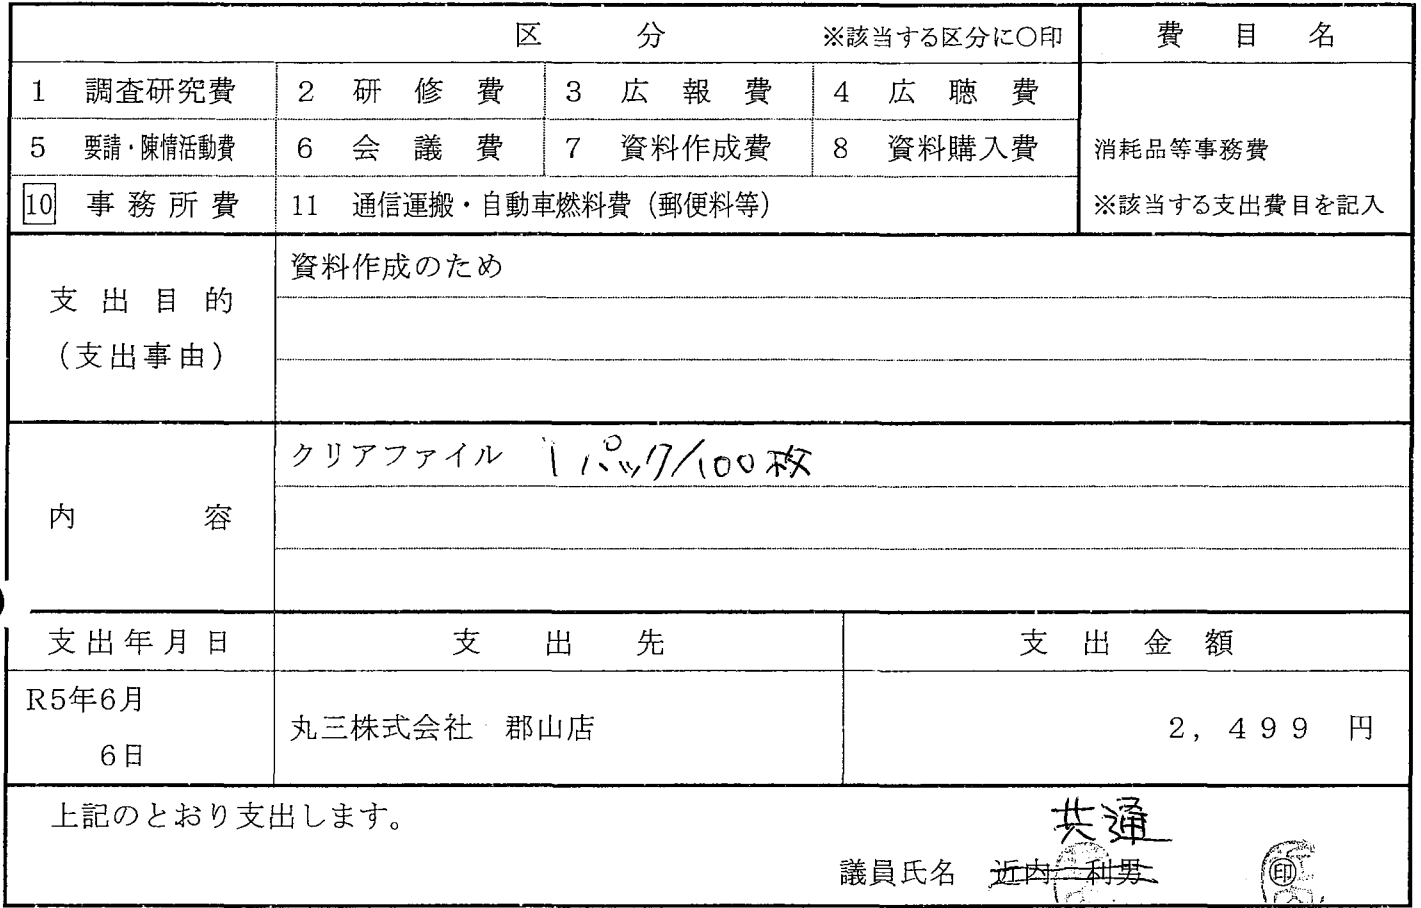 区 分 ※該当する区分に○印 費 目 名
1 調査研究費 2 研 修 費 3 広 報 費 4 広 聴 費
5 要請・陳情活動費 6 会 議 費 7 資料作成費 8 資料購入費 消耗品等事務費
10 事 務 所 費 11 通信運搬・自動車燃料費（郵便料等） ※該当する支出費目を記入
資料作成のため
支 出 目 的
（支出事由）
クリアファイル 1パック/100枚
内 容
支出年月日 支 出 先 支 出 金 額
R5年6月
6日
丸三株式会社 郡山店 2，499 円
上記のとおり支出します。
共通
議員氏名 近内 利男 印